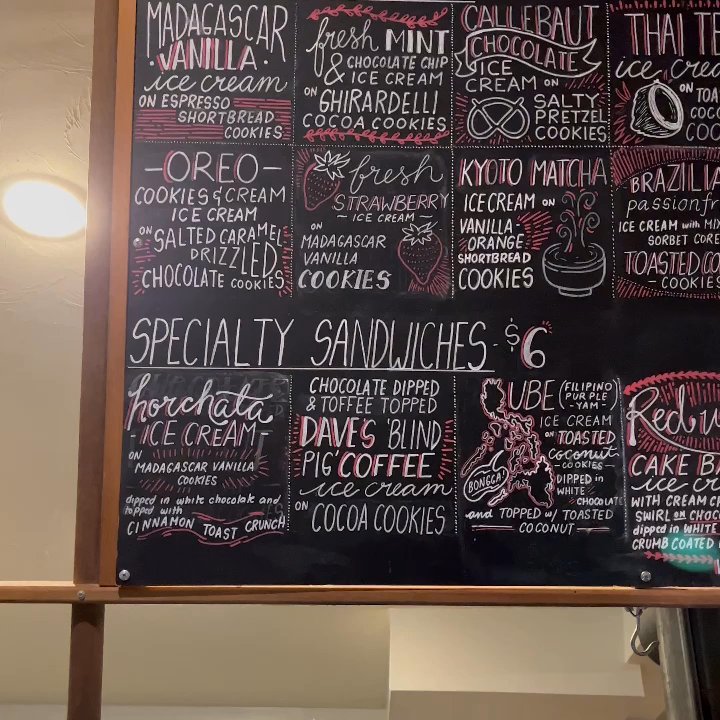 MADAGASCAR
VANILLA
ice cream
ON ESPRESSO
SHORTBREAD
COOKIES
fresh MINT
& CHOCOLATE CHIP
ICE CREAM
ON
GHIRARDELLI
COCOA COOKIES
CALLEBAUT
CHOCOLATE
ICE
CREAM ON
SALTY
PRETZEL
COOKIES
THAI
ice
ON
-OREO-
COOKIES & CREAM
ICE CREAM
ON SALTED CARAMEL
DRIZZLED
CHOCOLATE COOKIES
fresh
STRAWBERRY
- ICE CREAM -
ON
MADAGASCAR
VANILLA
COOKIES
KYOTO MATCHA
ICE CREAM ON
VANILLA-
ORANGE
SHORTBREAD
COOKIES
ICE CREAM with
SORBET
TOASTED
- COOKIES
SPECIALTY SANDWICHES - $6
horchata
-ICE CREAM-
ON
MADAGASCAR VANILLA
COOKIES
dipped in white chocolate and
topped with
CINNAMON TOAST CRUNCH
CHOCOLATE DIPPED
& TOFFEE TOPPED
DAVE'S BLIND
PIG COFFEE
ice cream
ON
COCOA COOKIES
UBE (FILIPINO
PURPLE
-YAM-)
ICE CREAM
ON TOASTED
coconut
-COOKIES-
DIPPED in
WHITE
CHOCOLATE
BONGGA!
and TOPPED w/ TOASTED
- COCONUT -
Red
CAKE
ICE
WITH CREAM
SWIRL on
dipped in WHITE
CRUMB COATED